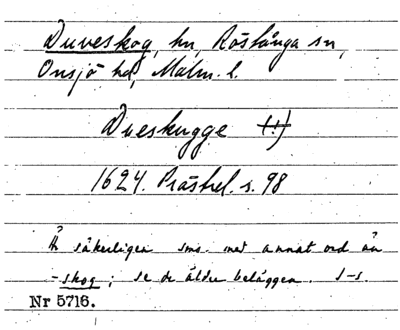 Duveskog, hn, Röstånga sn,
Onsjö hd, Malm. l.
Dueskugge (!)
1624. Prästrel. s. 98
Är säkerligen sms. med annat ord än
-skog; se de äldre beläggen. S-s.
Nr 5716.